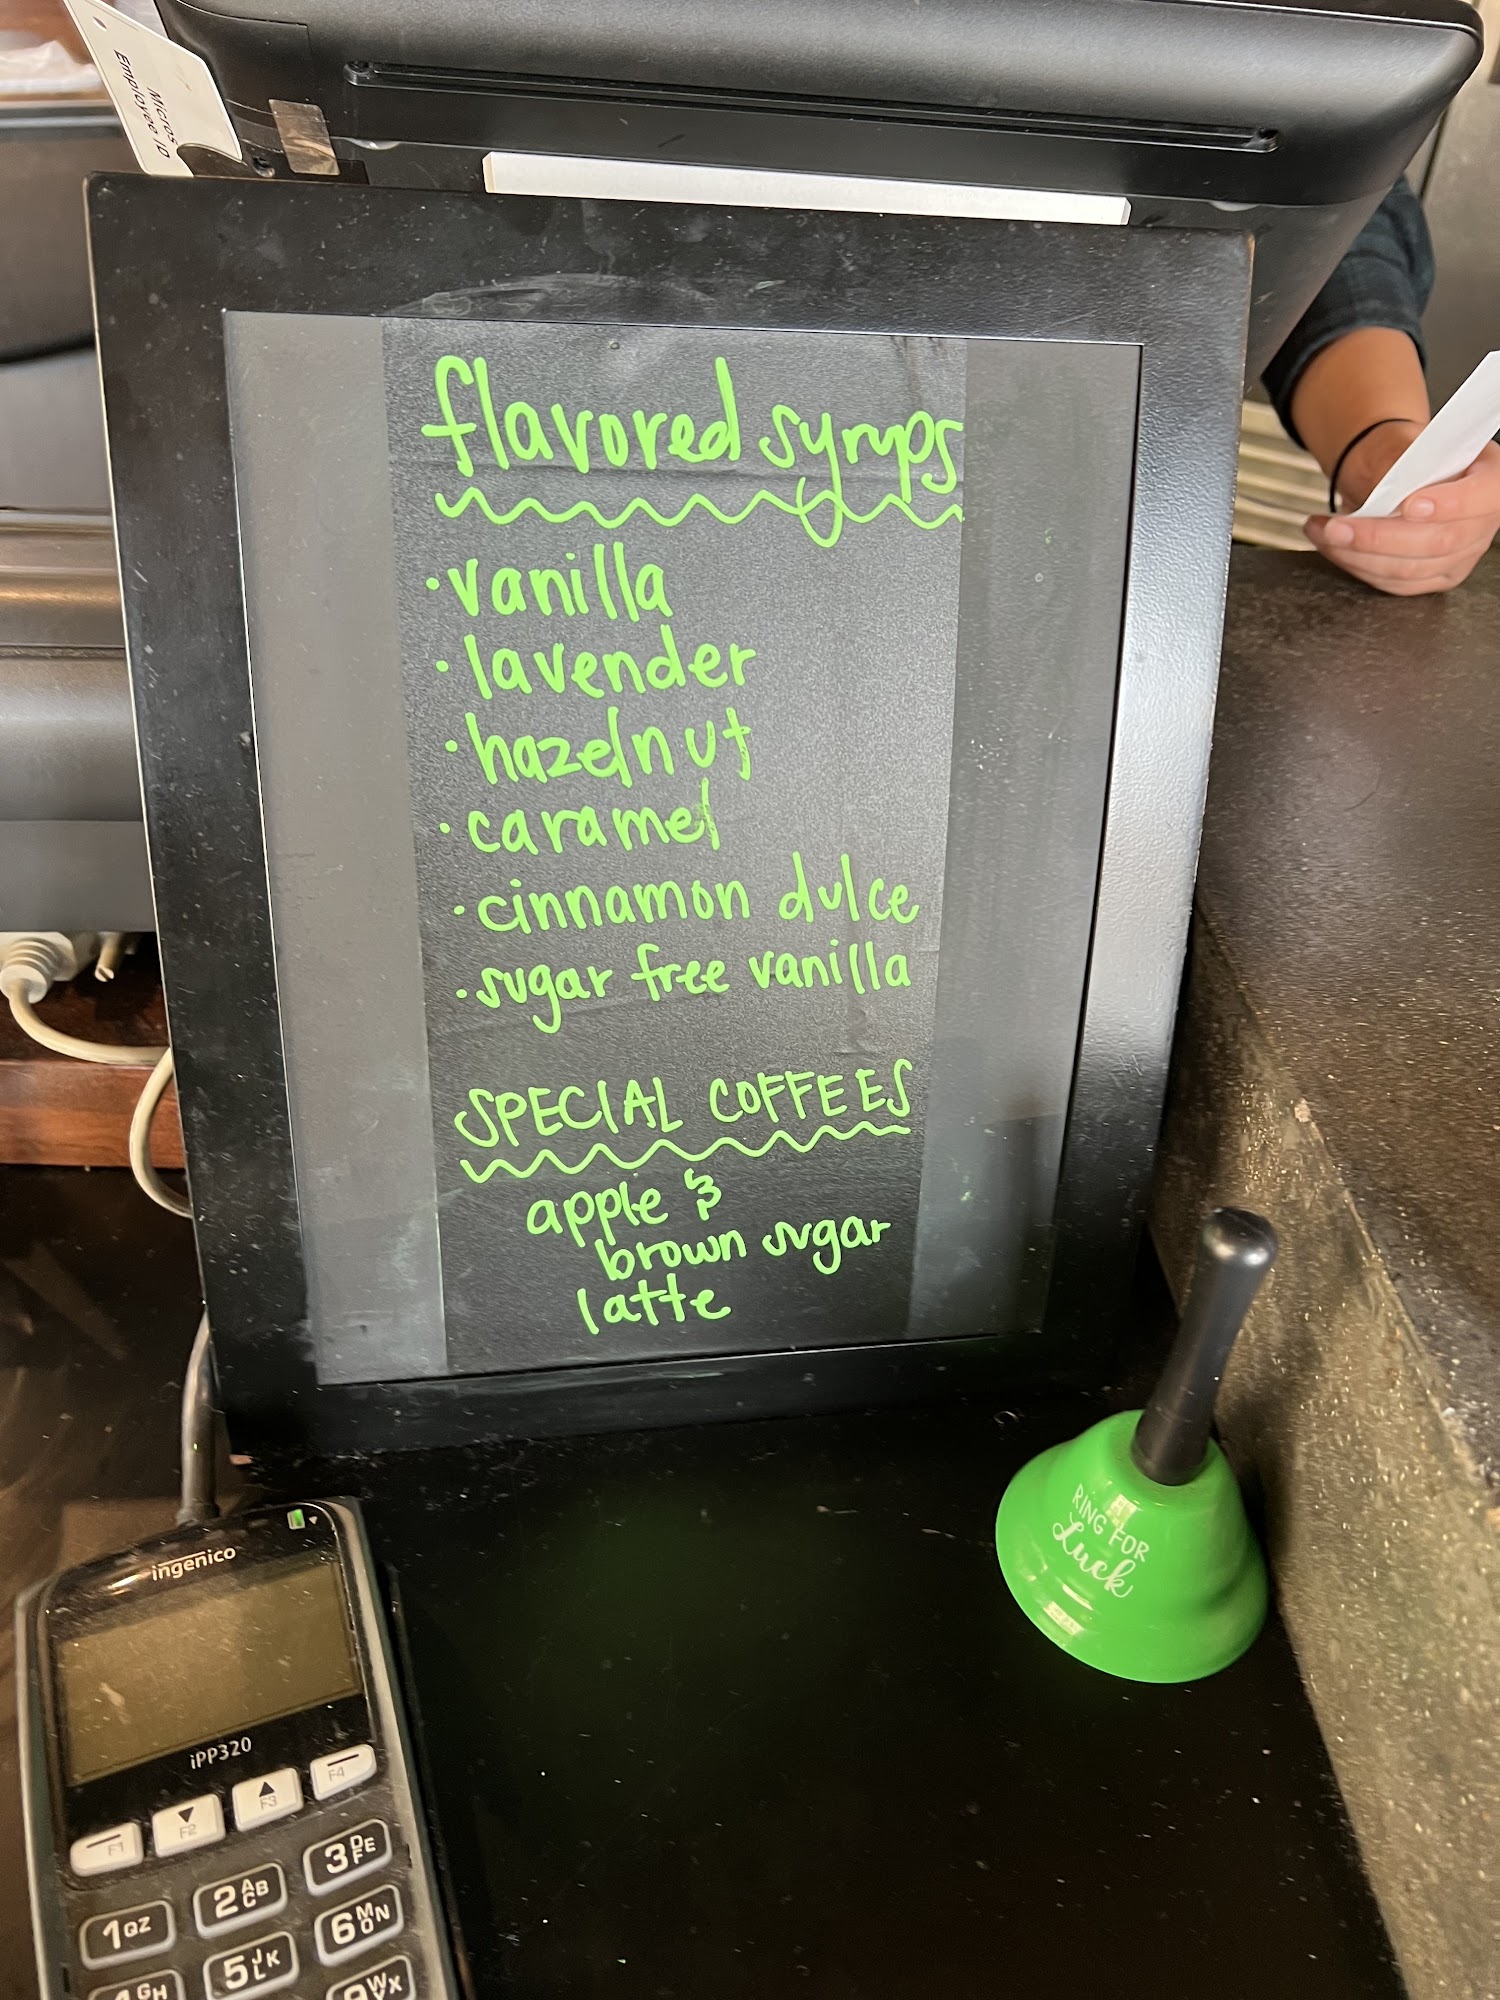 Micros
Employee ID
flavored syrups
· vanilla
· lavender
· hazelnut
· caramel
· cinnamon dulce
· sugar free vanilla
SPECIAL COFFEES
apple &
brown sugar
latte
RING FOR
Luck
ingenico
iPP320
F1 F2 F3 F4
1 QZ 2 ABC 3 DEF
4 GH 5 JKL 6 MNO
9 WX